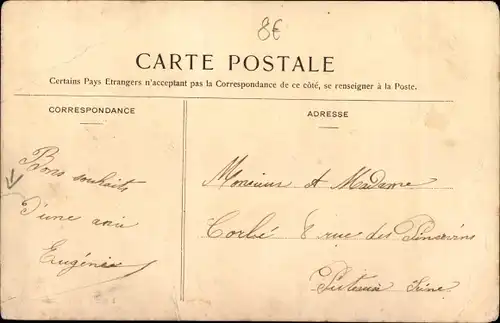 8€
CARTE POSTALE
Certains Pays Etrangers n'acceptant pas la Correspondance de ce côté, se renseigner à la Poste.
CORRESPONDANCE
Bons souhaits
d'une amie
Eugénie
ADRESSE
Monsieur et Madame
Corbé 8 rue des
Puteaux Seine